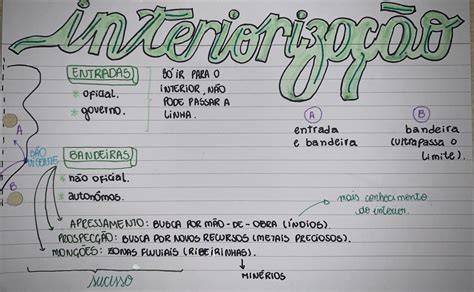 interiorização
ENTRADAS
* oficial.
* governo.
SÓ IR PARA O
INTERIOR, NÃO
PODE PASSAR A
LINHA.
A
entrada
e bandeira
B
bandeira
(ultrapassa o
limite).
A
SÃO
VICENTE
B
BANDEIRAS
* não oficial.
* autonômos.
mais conhecimento
do interior.
APRESSAMENTO: BUSCA POR MÃO-DE-OBRA (ÍNDIOS).
PROSPECÇÃO: BUSCA POR NOVOS RECURSOS (METAIS PRECIOSOS).
MONÇÕES: ZONAS FLUVIAIS (RIBEIRINHAS).
MINÉRIOS
sucesso